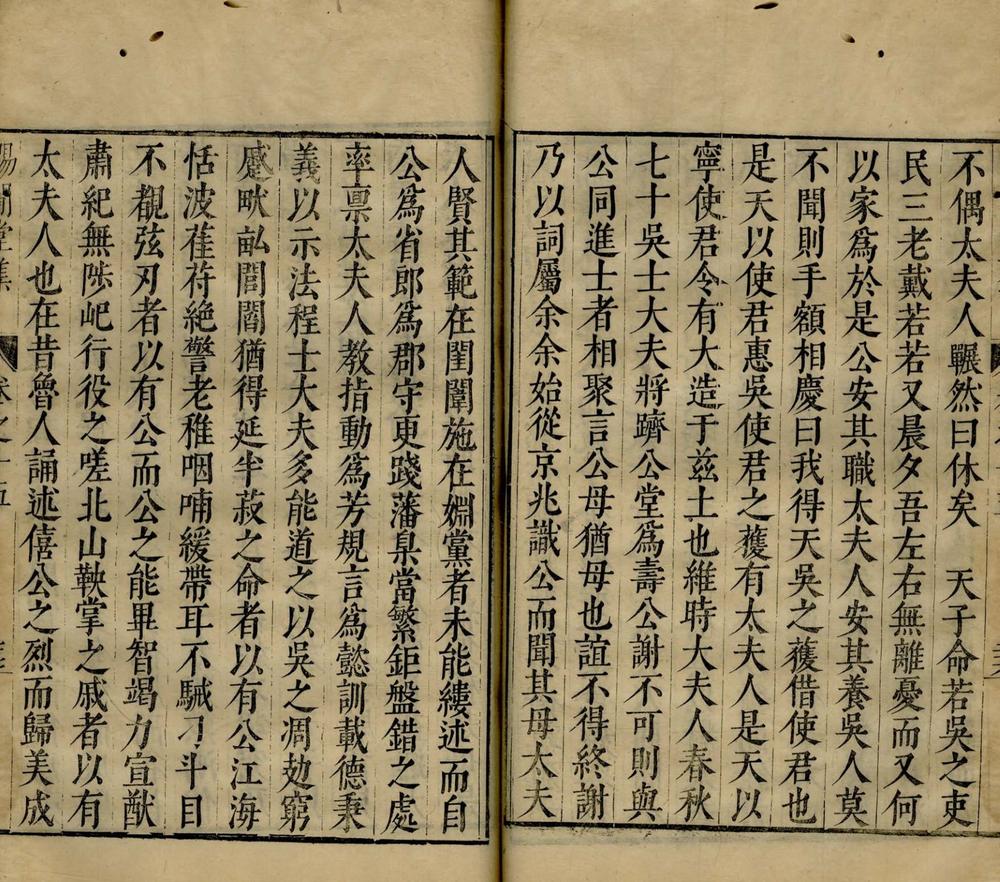 不偶太夫人囅然曰休矣　天子命若吳之吏
民三老戴若若又晨夕吾左右無離憂而又何
以家爲於是公安其職太夫人安其養吳人莫
不聞則手額相慶曰我得天吳之獲借使君也
是天以使君惠吳使君之獲有太夫人是天以
寧使君令有大造于兹土也維時大夫人春秋
七十吳士大夫將躋公堂爲壽公謝不可則與
公同進士者相聚言公母猶母也誼不得終謝
乃以詞屬余余始從京兆識公而聞其母太夫
人賢其範在閨闈施在婣黨者未能縷述而自
公爲省郎爲郡守更踐藩臬當繁鉅盤錯之處
率禀太夫人敎指動爲芳規言爲懿訓載德秉
義以示法程士大夫多能道之以吳之凋攰窮
蹙畎畝閭閻猶得延半菽之命者以有公江海
恬波萑苻絶警老稚咽喃緩帶耳不駴刁斗目
不覩弦刃者以有公而公之能畢智竭力宣猷
肅紀無陟屺行役之嗟北山鞅掌之戚者以有
太夫人也在昔魯人誦述僖公之烈而歸美成
堂集　卷之十五